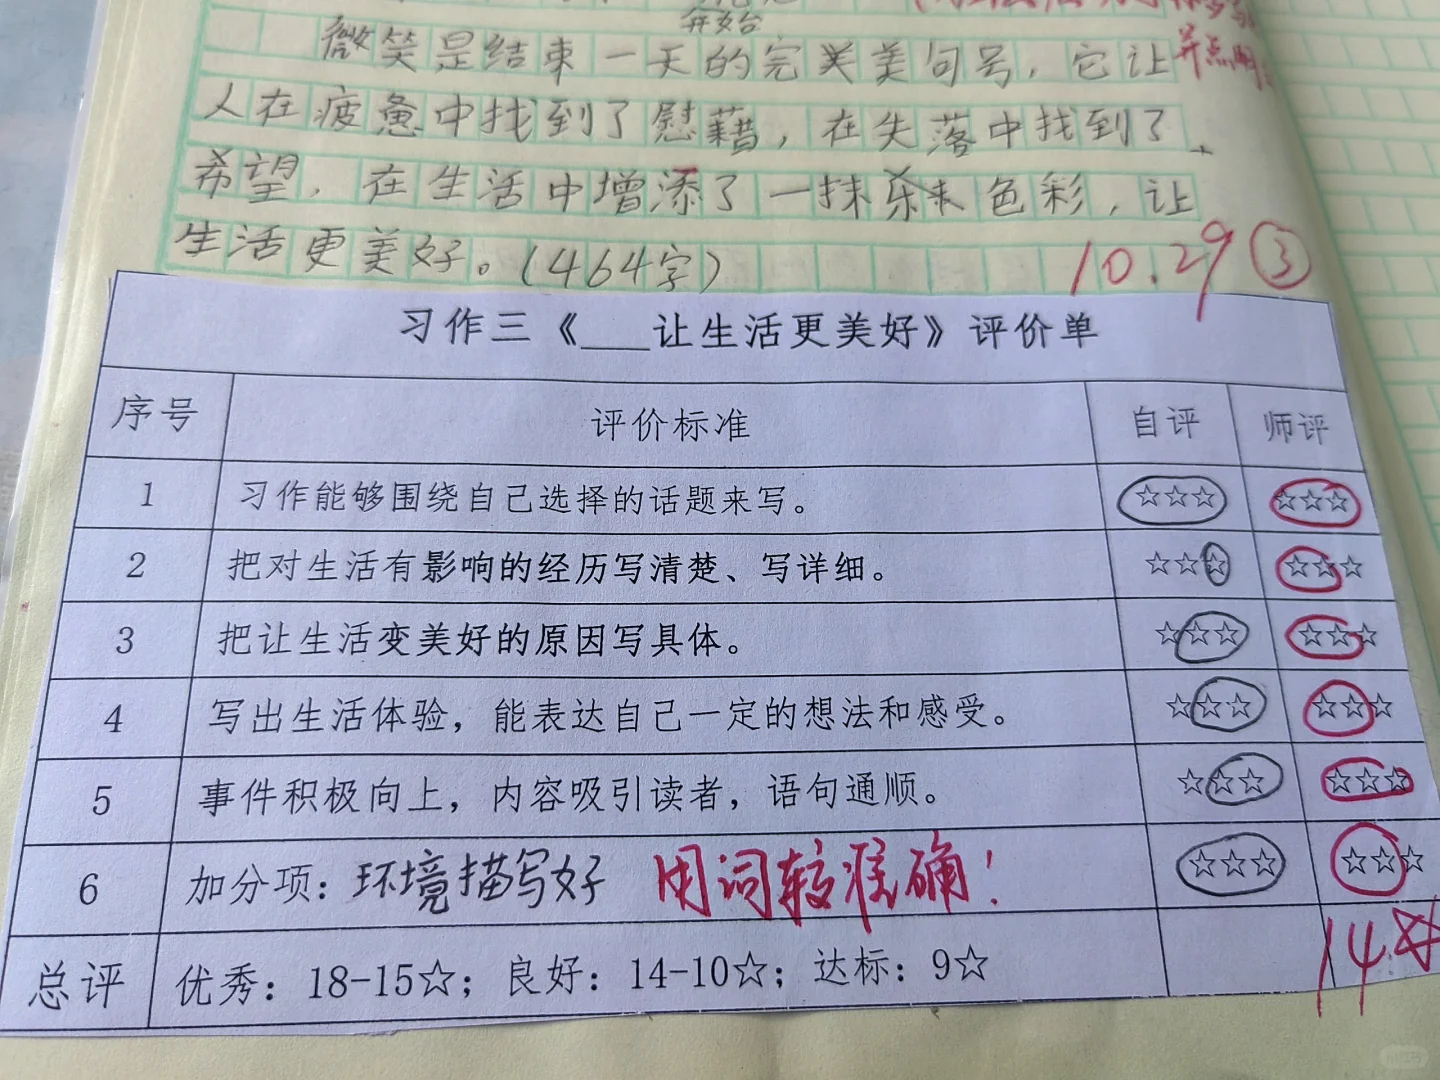 开始
微笑是结束一天的完美句号，它让
并点明
人在疲惫中找到了慰藉，在失落中找到了
希望，在生活中增添了一抹色彩，让
生活更美好。(464字)
10.29 ③
习作三《___让生活更美好》评价单
序号 评价标准 自评 师评
1 习作能够围绕自己选择的话题来写。 ☆☆☆ ☆☆☆
2 把对生活有影响的经历写清楚、写详细。 ☆☆☆ ☆☆☆
3 把让生活变美好的原因写具体。 ☆☆☆ ☆☆☆
4 写出生活体验，能表达自己一定的想法和感受。 ☆☆☆ ☆☆☆
5 事件积极向上，内容吸引读者，语句通顺。 ☆☆☆ ☆☆☆
6 加分项：环境描写好 用词较准确！ ☆☆☆ ☆☆☆
总评 优秀：18-15☆；良好：14-10☆；达标：9☆ 14☆